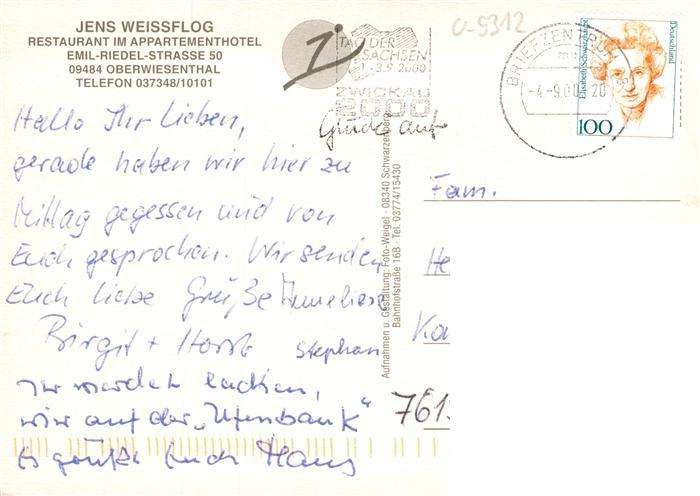 JENS WEISSFLOG
RESTAURANT IM APPARTEMENTHOTEL
EMIL-RIEDEL-STRASSE 50
09484 OBERWIESENTHAL
TELEFON 037348/10101
TAG DER
SACHSEN
-3.9.2000
ZWICKAU
2000
U-9312
BRIEFZENTRUM
-4.-9.00 20
Elisabeth Schwarzhaupt
Deutschland
100
Glück auf
Hallo Ihr Lieben,
gerade haben wir hier zu
Mittag gegessen und von
Euch gesprochen. Wir senden
Euch liebe Grüße Anneliese
Birgit + Horst Stephan
Ihr werdet lachen,
wir auf der „Ofenbank“
Es grüßt Euch Hans
Aufnahmen u. Gestaltung: Foto-Weigel · 08340 Schwarzenberg
Bahnhofstraße 16B · Tel. 03774/15430
Fam.
He
Ka
761